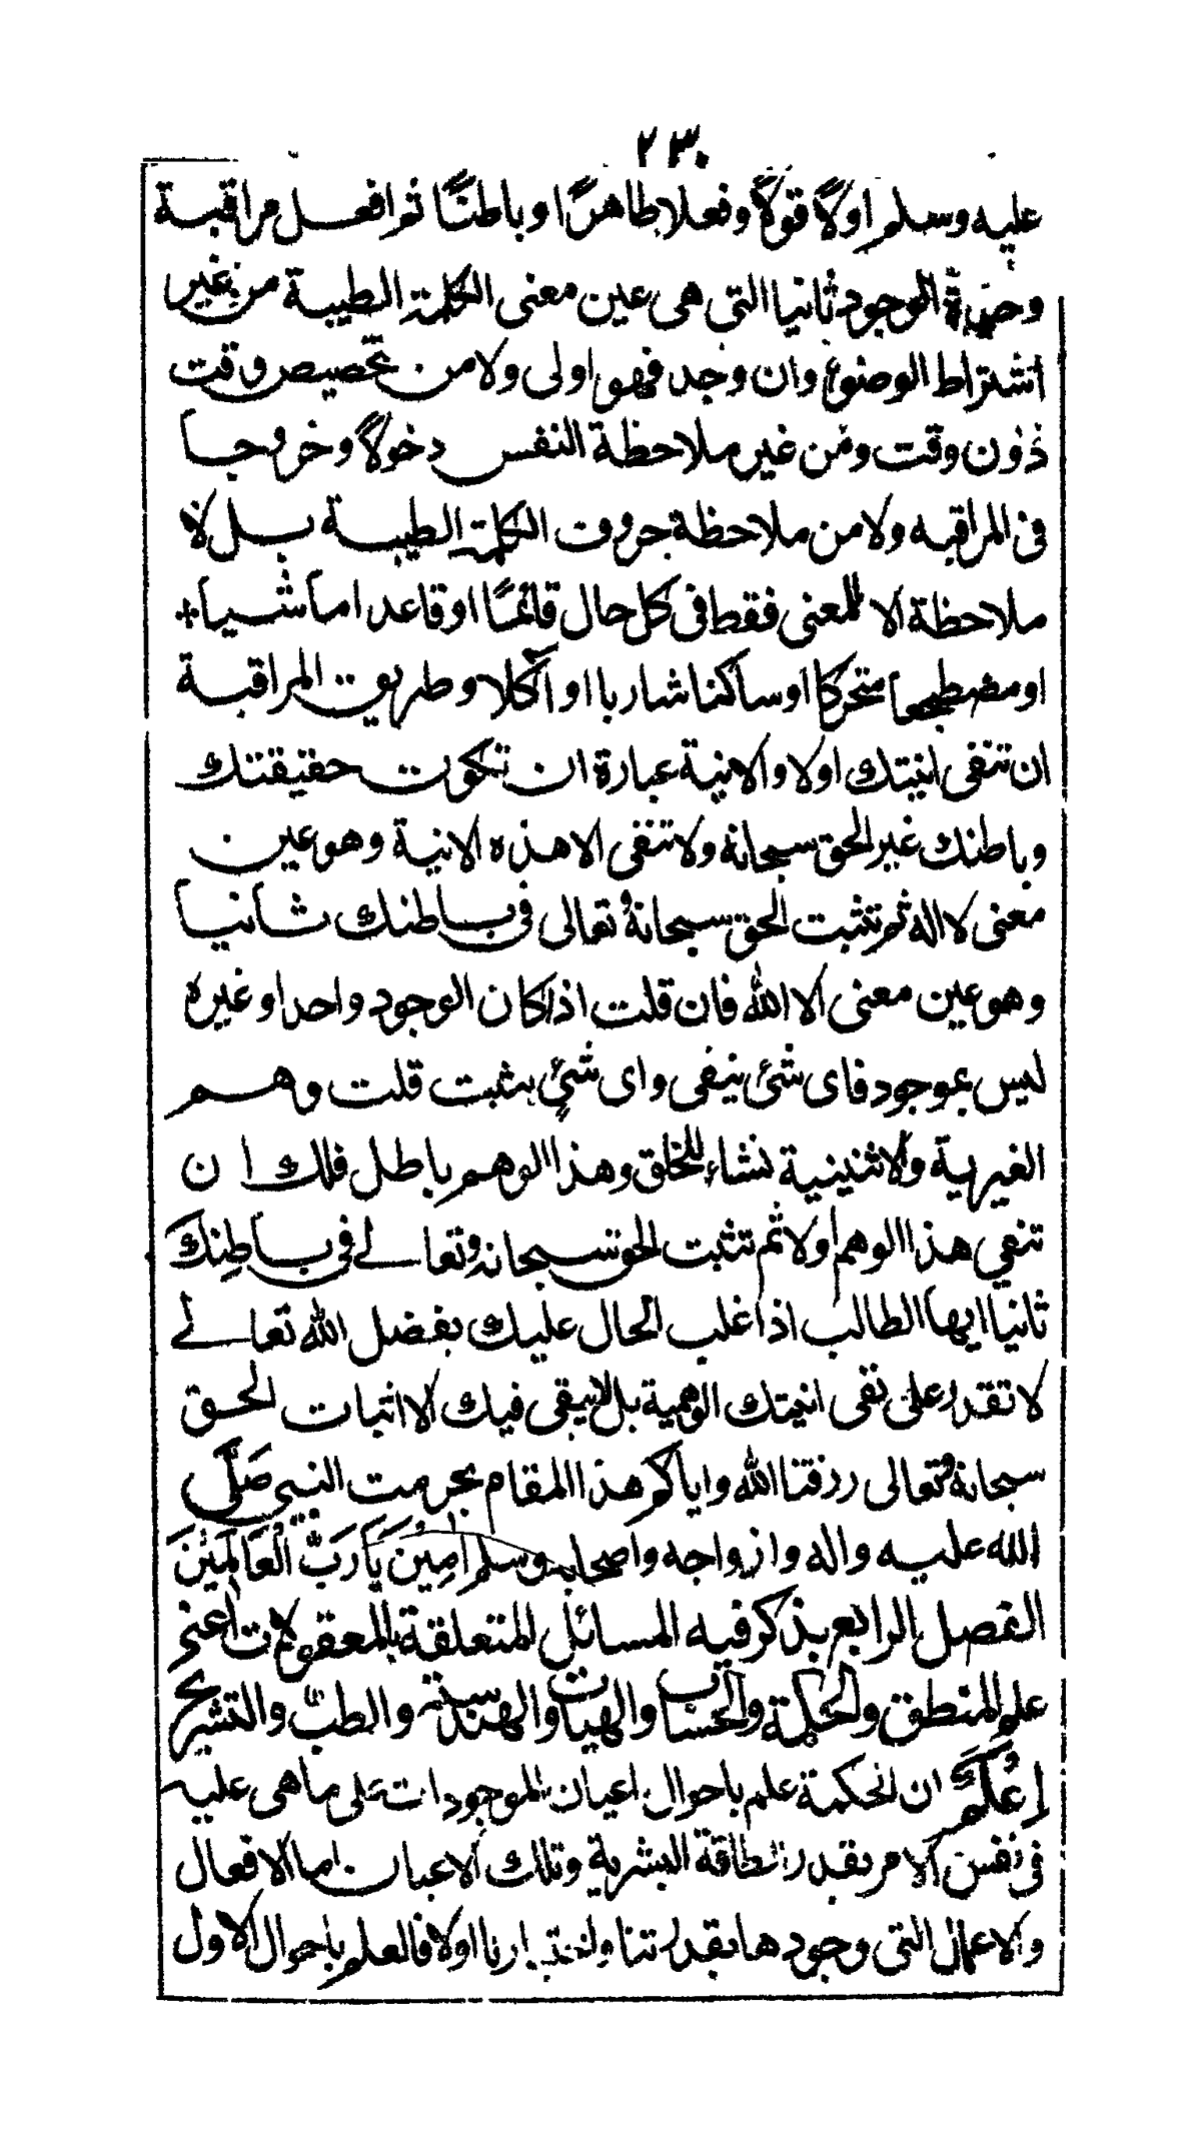 ٢٣٠
عليه وسلم اولًا قولًا وفعلا ظاهرًا وباطنًا ثم افعل مراقبة
وحدة الوجود ثانيا التى هى عين معنى الكلمة الطيبة من غير
اشتراط الوضوء وان وجد فهو اولى ولا من تخصيص وقت
دون وقت ومن غير ملاحظة النفس دخولًا وخروجا
فى المراقبه ولا من ملاحظة حروف الكلمة الطيبة بل لا
ملاحظة الا للمعنى فقط فى كل حال قائمًا او قاعدا ماشيا
او مضطجعا متحركا او ساكنا شاربا او آكلا وطريق المراقبة
ان تنفى انيتك اولا والانية عبارة ان تكون حقيقتك
وباطنك غير الحق سبحانه ولا تنفى الا هذه الانية وهو عين
معنى لا اله ثم تثبت الحق سبحانه وتعالى فى باطنك ثانيا
وهو عين معنى الا الله فان قلت اذا كان الوجود واحدا وغيره
ليس بموجود فاى شئ ينفى واى شئ يثبت قلت وهم
الغيرية والاثنينية نشاء للخلق وهذا الوهم باطل فلك ان
تنفي هذا الوهم اولا ثم تثبت الحق سبحانه وتعالے فى باطِنك
ثانيا ايها الطالب اذا غلب الحال عليك بفضل الله تعالے
لا تقدر على نفى انيتك الوهمية بل لا يبقى فيك الا اثبات الحق
سبحانه وتعالى رزقنا الله واياكم هذا المقام بحرمت النبي صَلَّى
الله عليه واله وازواجه واصحابه وسلم اٰمِيْنَ يَارَبَّ الْعَالَمِيْنَ
الفصل الرابع يذكر فيه المسائل المتعلقة بالمعقولات اعنى
علم المنطق والحكمة والحساب والهيات والهندسة والطب والتشريح
اِعْلَمْ ان الحكمة علم باحوال اعيان الموجودات على ما هى عليه
فى نفس الامر بقدر الطاقة البشرية وتلك الاعيان اما الافعال
والاعمال التى وجودها بقدرتنا واختيارنا اولا فالعلم باحوال الاول